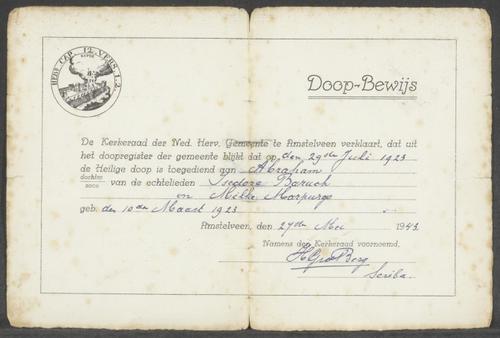 HEBR. CAP. 12. VERS 1, 2.
Doop-Bewijs
De Kerkeraad der Ned. Herv. Gemeente te Amstelveen verklaart, dat uit
het doopregister der gemeente blijkt dat op den 29ste Juli 1923
de Heilige doop is toegediend aan Abraham
dochter
zoon
van de echtelieden Isedore Baruch
en Mietke Morpurgo
geb. den 10den Maart 1923
Amstelveen, den 27ste Mei 1943.
Namens den Kerkeraad voornoemd,
Scriba.